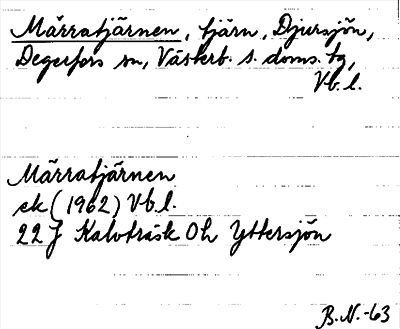 Märratjärnen, tjärn, Djursjön,
Degerfors sn, Västerb. s. doms. tg,
Vb. l.
Märratjärnen
ek (1962) Vb.l.
22 J Kalvträsk Oh Yttersjön
B.N.-63